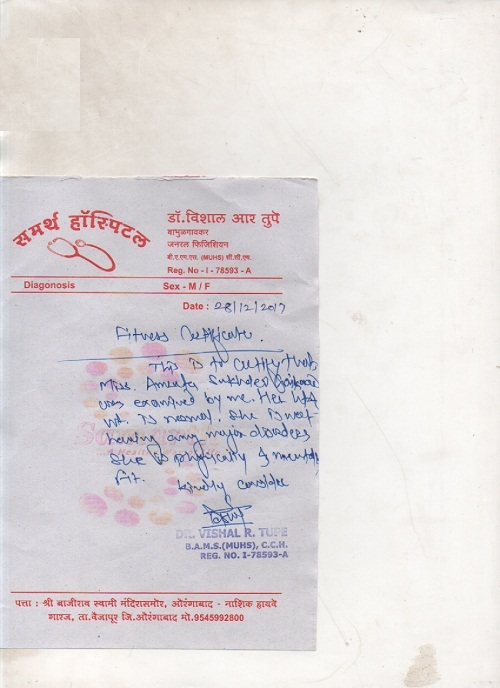 समर्थ हॉस्पिटल
डॉ.विशाल आर तुपे
बाभुळगावकर
जनरल फिजिशियन
बी.ए.एम.एस. (MUHS) सी.सी.एच.
Reg. No - I - 78593 - A
Diagonosis Sex - M / F
Date : 28/12/2017
Fitness Certificate.
This is to certify that
Miss. Sukhdev
was examined by me. Her Ht &
wt is normal. She is not
having any major disorders
She is physically & mentally
fit.
kindly consider
DR. VISHAL R. TUPE
B.A.M.S.(MUHS), C.C.H.
REG. NO. I-78593-A
पत्ता : श्री बाजीराव स्वामी मंदिरासमोर, औरंगाबाद - नाशिक हायवे
गारज, ता.वैजापूर जि.औरंगाबाद मो.9545992800